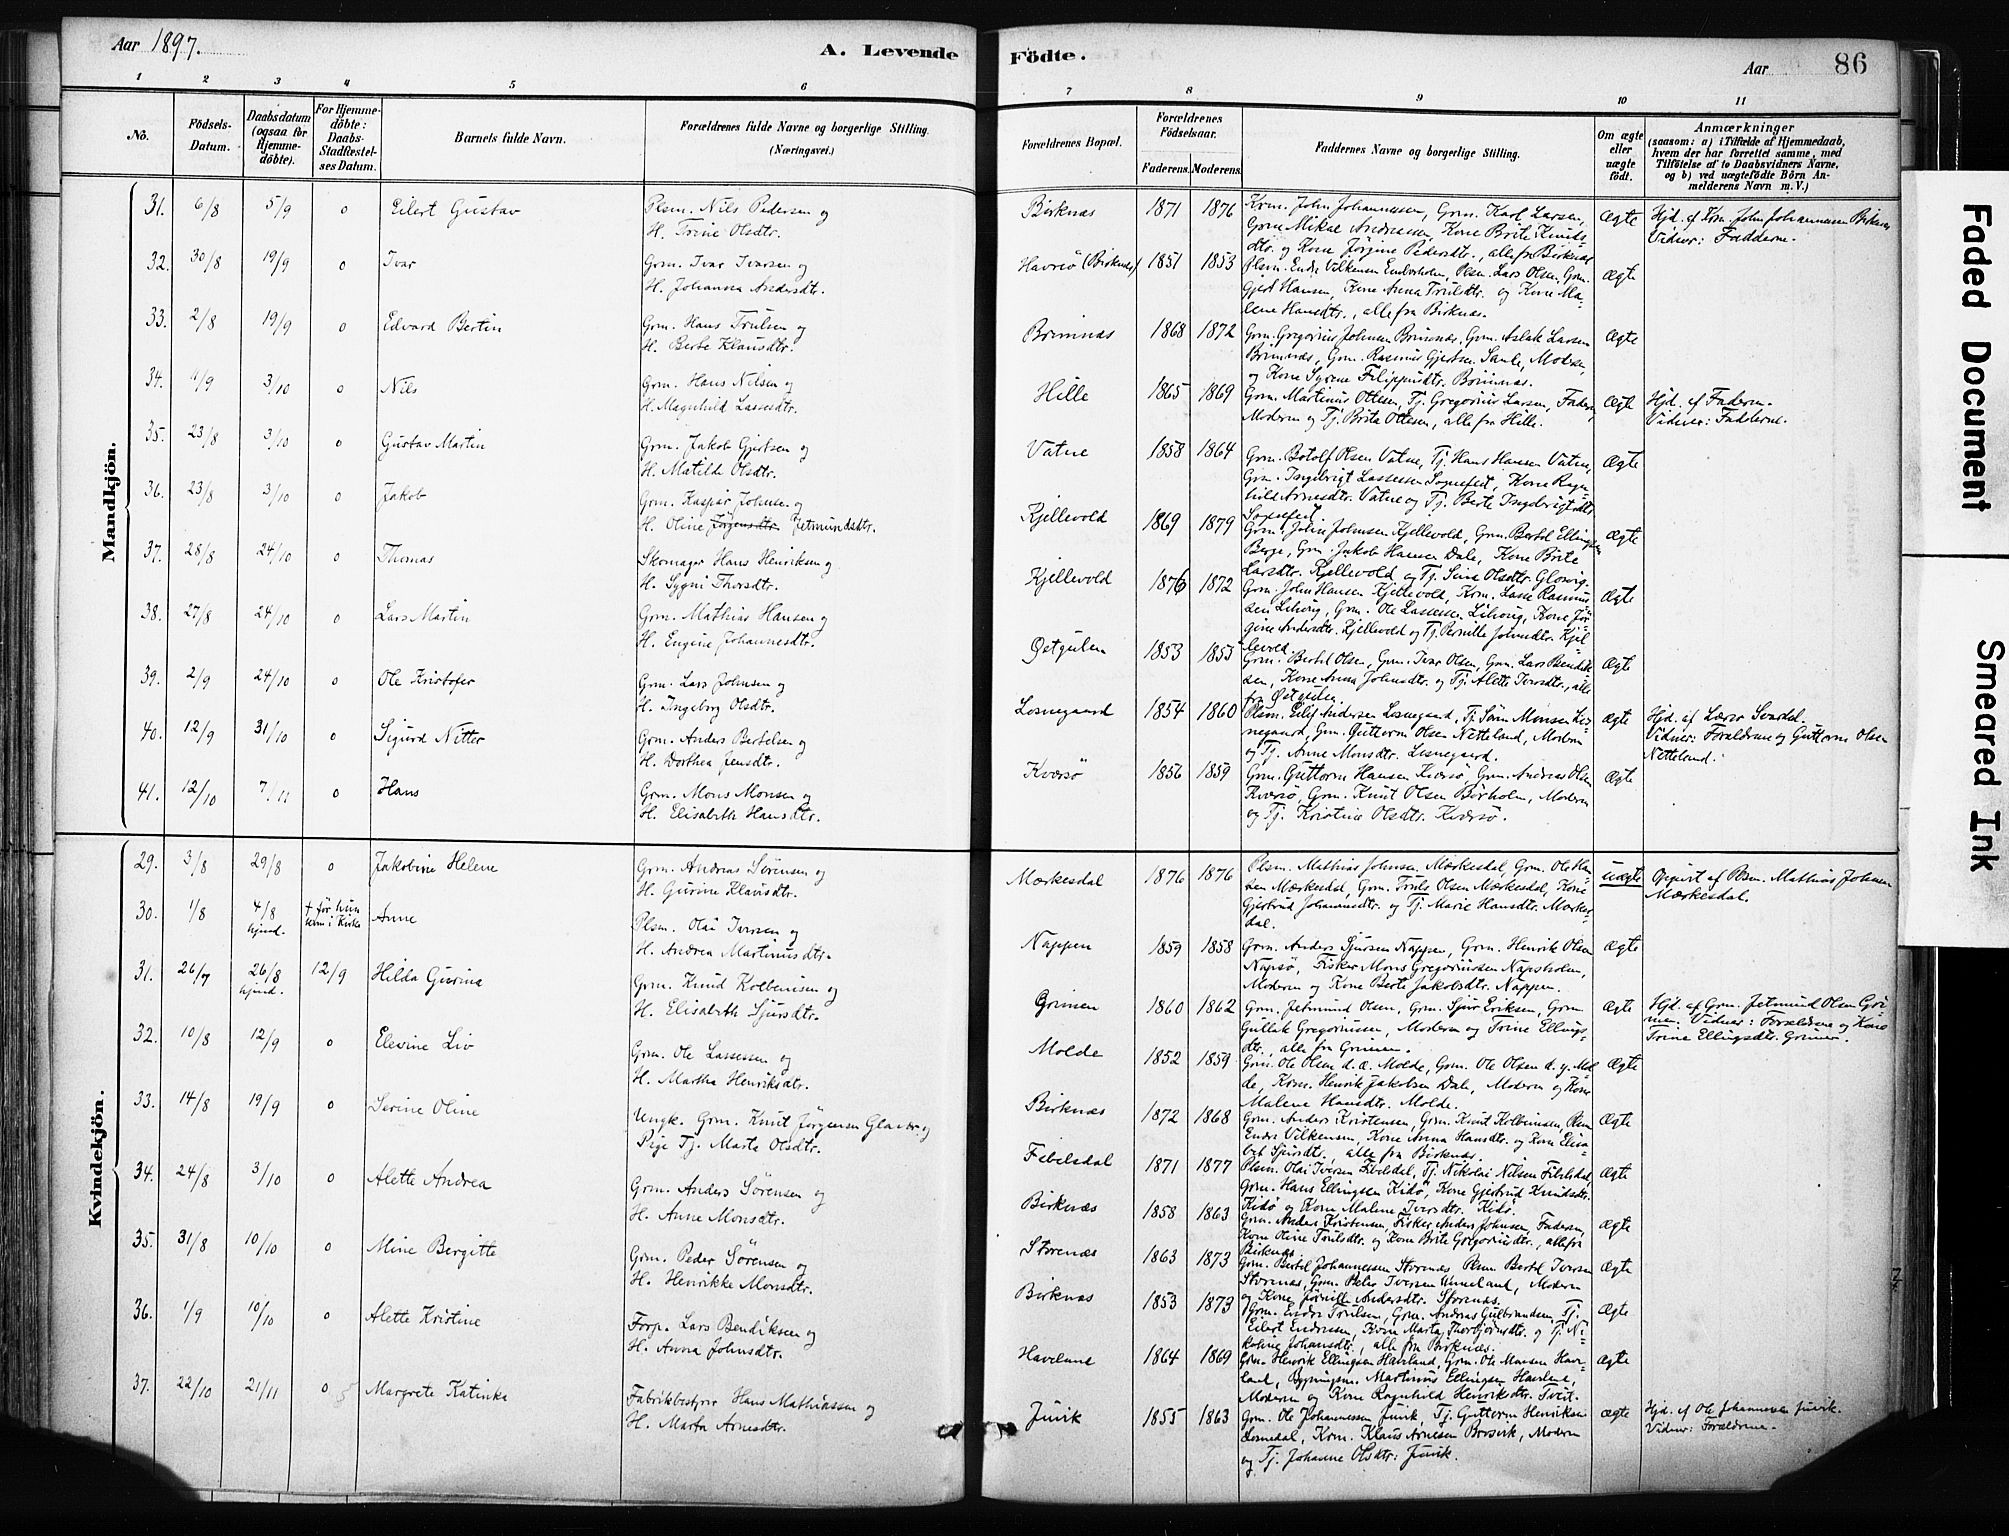 Aar 1897.
A. Levende
Födte.
Aar
86
1 2 3 4 5 6 7 8 9 10 11
No.
Födsels-
Datum.
Daabsdatum
(ogsaa for
Hjemme-
döbte).
For Hjemme-
döbte:
Daabs-
Stadfæstel-
ses Datum.
Barnets fulde Navn.
Forældrenes fulde Navne og borgerlige Stilling.
(Næringsvei.)
Forældrenes Bopæl.
Forældrenes
Födselsaar.
Faderens. Moderens.
Faddernes Navne og borgerlige Stilling.
Om ægte
eller
uægte
födt.
Anmærkninger
(saasom: a) i Tilfælde af Hjemmedaab,
hvem der har forrettet samme, med
Tilföielse af to Daabsvidners Navne,
og b) ved uægtefödte Börn An-
melderens Navn m. V.)
Mandkjön.
31. 6/8 5/9 o Eilert Gustav
Plsm. Nils Pedersen og
H. Trine Olsdtr.
32. 30/8 19/9 o Ivar
Grm. Ivar Ivarsen og
H. Johanna Andersdtr.
33. 2/8 19/9 o Edvard Bertin
Grm. Hans Trulsen og
H. Berte Klausdtr.
34. 1/9 3/10 o Nils
Grm. Hans Nilsen og
H. Magnhild Lassesdtr.
35. 23/8 3/10 o Gustav Martin
Grm. Jakob Gjertsen og
H. Matilde Olsdtr.
36. 23/8 3/10 o Jakob
Grm. Kaspar Johnsen og
H. Oline Jørgensdtr. Jetmundsdtr.
37. 28/8 24/10 o Thomas
Skomager Hans Henriksen og
H. Sygni Thorsdtr.
38. 27/8 24/10 o Lars Martin
Grm. Mathias Hansen og
H. Engine Johannesdtr.
39. 2/9 24/10 o Ole Kristofer
Grm. Lars Johnsen og
H. Ingeborg Olsdtr.
40. 12/9 31/10 o Sigurd Nitter
Grm. Anders Bertelsen og
H. Dorthea Jensdtr.
41. 12/10 7/11 o Hans
Grm. Mons Monsen og
H. Elisabeth Hansdtr.
Kvindekjön.
29. 3/8 29/8 o Jakobine Helene
Grm. Andreas Sørensen og
H. Gurine Klausdtr.
30. 1/8 4/8 hjmd. † før hun kom i Kirke Anne
Plsm. Olai Iversen og
H. Andrea Martinusdtr.
31. 26/7 26/8 hjmd. 12/9 Hilda Gurina
Grm. Knud Kolbeinsen og
H. Elisabeth Sjursdtr.
32. 10/8 12/9 o Elevine Liv
Grm. Ole Lassesen og
H. Martha Henriksdtr.
33. 14/8 19/9 o Serine Oline
Ungk. Grm. Knut Jørgensen Glavær og
Pige Tj. Marta Olsdtr.
34. 24/8 3/10 o Alette Andrea
Grm. Anders Sørensen og
H. Anne Monsdtr.
35. 31/8 10/10 o Mine Bergitte
Grm. Peder Sørensen og
H. Henrikke Monsdtr.
36. 1/9 10/10 o Alette Kristine
Forp. Lars Bendiksen og
H. Anna Johnsdtr.
37. 22/10 21/11 o Margrete Katinka
Fabrikbestyrer Hans Mathiassen og
H. Marta Arnesdtr.
Birknæs 1871 1876
Krm. John Johannessen, Grm. Karl Larsen,
Grm. Mikal Andreassen, Kone Brite Knuds-
dtr. og Kone Jørgine Pedersdtr., alle fra Birknæs
Ægte
Hjd. af Krm. John Johannessen Birknæs
Vidner: Fadderne.
Havrsö (Birknæs) 1851 1853
Plsm. Endre Vilkensen Enderholm, Plsm. Lars Olsen, Grm.
Gjert Hansen, Kone Anna Trulsdtr. og Kone Ma-
lene Hansdtr., alle fra Birknæs.
Ægte
Brimnæs 1868 1872
Grm. Gregorius Johnsen Brimnæs, Grm. Aslak Larsen
Brimnæs, Grm. Rasmus Gjertsen Sanle, Moderen,
og Kone Syrene Filippusdtr. Brimnæs.
Ægte
Hille 1865 1869
Grm. Martinus Ottesen, Tj. Gregorius Larsen, Faderen,
Moderen og Tj. Brita Ottesen, alle fra Hille.
Ægte
Hjd. af Faderen.
Vidner: Fadderne.
Vatne 1858 1864
Grm. Botolf Olsen Vatne, Tj. Hans Hansen Vatne,
Grm. Ingebrigt Lassessen Sognefest, Kone Ragn-
hild Arnesdtr. Vatne og Tj. Berte Ingebrigtsdtr.
Sognefest
Ægte
Kjellevold 1869 1879
Grm. Johan Johnsen Kjellevold, Grm. Bertel Ellingsen
Berge, Grm. Jakob Hansen Dale, Kone Brite
Larsdtr. Kjellevold og Tj. Sina Olsdtr. Glosvig.
Ægte
Kjellevold 1876 1872
Grm. John Hansen Kjellevold, Krm. Lasse Rasmus-
sen Lihovig, Grm. Ole Lassesen Lihovig, Kone Jør-
gine Andersdtr. Kjellevold og Tj. Pernille Johnsdtr. Kjel-
levold
Ægte
Østgulen 1853 1855
Grm. Bertel Olsen, Grm. Ivar Olsen, Grm. Lars Bendik-
sen, Kone Anna Johnsdtr. og Tj. Alette Iversdtr., alle
fra Østgulen
Ægte
Losnegaard 1854 1860
Plsm. Eilif Andersen Losnegaard, Tj. Sørn Monsen Los-
negaard, Grm. Guttorm Olsen Netteland, Moderen
og Tj. Anne Monsdtr. Losnegaard.
Ægte
Hjd. af Lærer Svardal.
Vidner: Forældrene og Guttorm Olsen
Netteland.
Kversø 1856 1859
Grm. Guttorm Hansen Kversø, Grm. Andreas Olsen
Kversø, Grm. Knut Olsen Birholm, Moderen
og Tj. Kristine Olsdtr. Kversø.
Ægte
Mærkesdal 1876 1876
Plsm. Mathias Johnsen Mærkesdal, Grm. Ole Han-
sen Mærkesdal, Grm. Truls Olsen Mærkesdal, Kone
Gjertrud Johannesdtr. og Tj. Marie Hansdtr. Mærkes-
dal.
uægte
Opgivet af Plsm. Mathias Johnsen
Mærkesdal.
Nappen 1859 1858
Grm. Anders Sjursen Nappen, Grm. Henrik Olsen
Napsø, Fisker Mons Gregoriussen Napsholm,
Moderen og Kone Berte Jakobsdtr. Nappen.
Ægte
Grimen 1860 1862
Grm. Jetmund Olsen, Grm. Sjur Eriksen, Grm.
Gullak Gregoriussen, Moderen og Trine Ellings-
dtr., alle fra Grimen.
Ægte
Hjd. af Grm. Jetmund Olsen Gri-
men. Vidner: Forældrene og Kone
Trine Ellingsdtr. Grimen.
Molde 1852 1859
Grm. Ole Olsen d. æ. Molde, Grm. Ole Olsen d. y. Mol-
de, Krm. Henrik Jakobsen Dale, Moderen og Kone
Malene Hansdtr. Molde.
Ægte
Birknæs 1872 1868
Grm. Anders Kristensen, Grm. Knut Kolbeinsen, Plsm.
Endre Vilkensen, Kone Anna Hansdtr. og Kone Elisa-
bet Sjursdtr., alle fra Birknæs.
Ægte
Fibelsdal 1871 1877
Plsm. Olai Iversen Fibelsdal, Tj. Nikolai Nilsen Fibelsdal,
Grm. Hans Ellingsen Kidø, Kone Gjertrud Knudsdtr.
Kidø og Kone Malene Iversdtr. Kidø.
Ægte
Birknæs 1858 1863
Grm. Anders Kristensen, Fisker Anders Johnsen, Faderen,
Kone Oline Trulsdtr. og Kone Brite Gregoriusdtr., alle fra
Birknæs
Ægte
Storenæs 1863 1873
Grm. Bertel Johannessen Storenæs, Plsm. Bertel Iversen
Storenæs, Grm. Peder Iversen Unneland, Moderen
og Kone Jørnille Andersdtr. Storenæs.
Ægte
Birknæs 1853 1873
Grm. Endre Trulsen, Grm. Andreas Gulbrandsen, Tj.
Eilert Endresen, Kone Marta Thorbjørnsdtr. og Tj. Ni-
koline Johansdtr., alle fra Birknæs.
Ægte
Haveland 1864 1869
Grm. Henrik Ellingsen Haveland, Grm. Ole Monsen Have-
land, Bygningsm. Martinus Ellingsen Haveland,
Moderen og Kone Ragnhild Henriksdtr. Tveit.
Ægte
Juvik 1855 1863
Grm. Ole Johannessen Juvik, Tj. Guttorm Henriksen
Kone Losnedal, Krm. Klaus Arnesen Brosvik, Moderen
og Tj. Johanne Olsdtr. Juvik.
Ægte
Hjd. af Ole Johannessen Juvik.
Vidner: Forældrene.
Faded Document
Smeared Ink